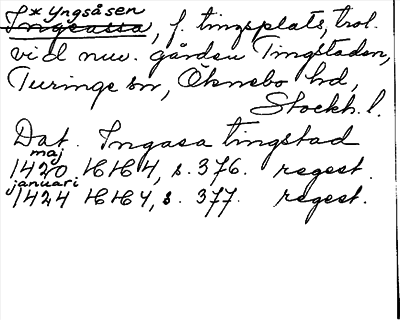 * Yngsåsen
Ingeassa, f. tingsplats, trol.
vid nuv. gården Tingstaden,
Turinge sn, Öknebo hd,
Stockh. l.
Dat. Ingasa tingstad
maj
1420 HH 4, s. 376. regest.
januari
1424 HH 4, s. 377. regest.